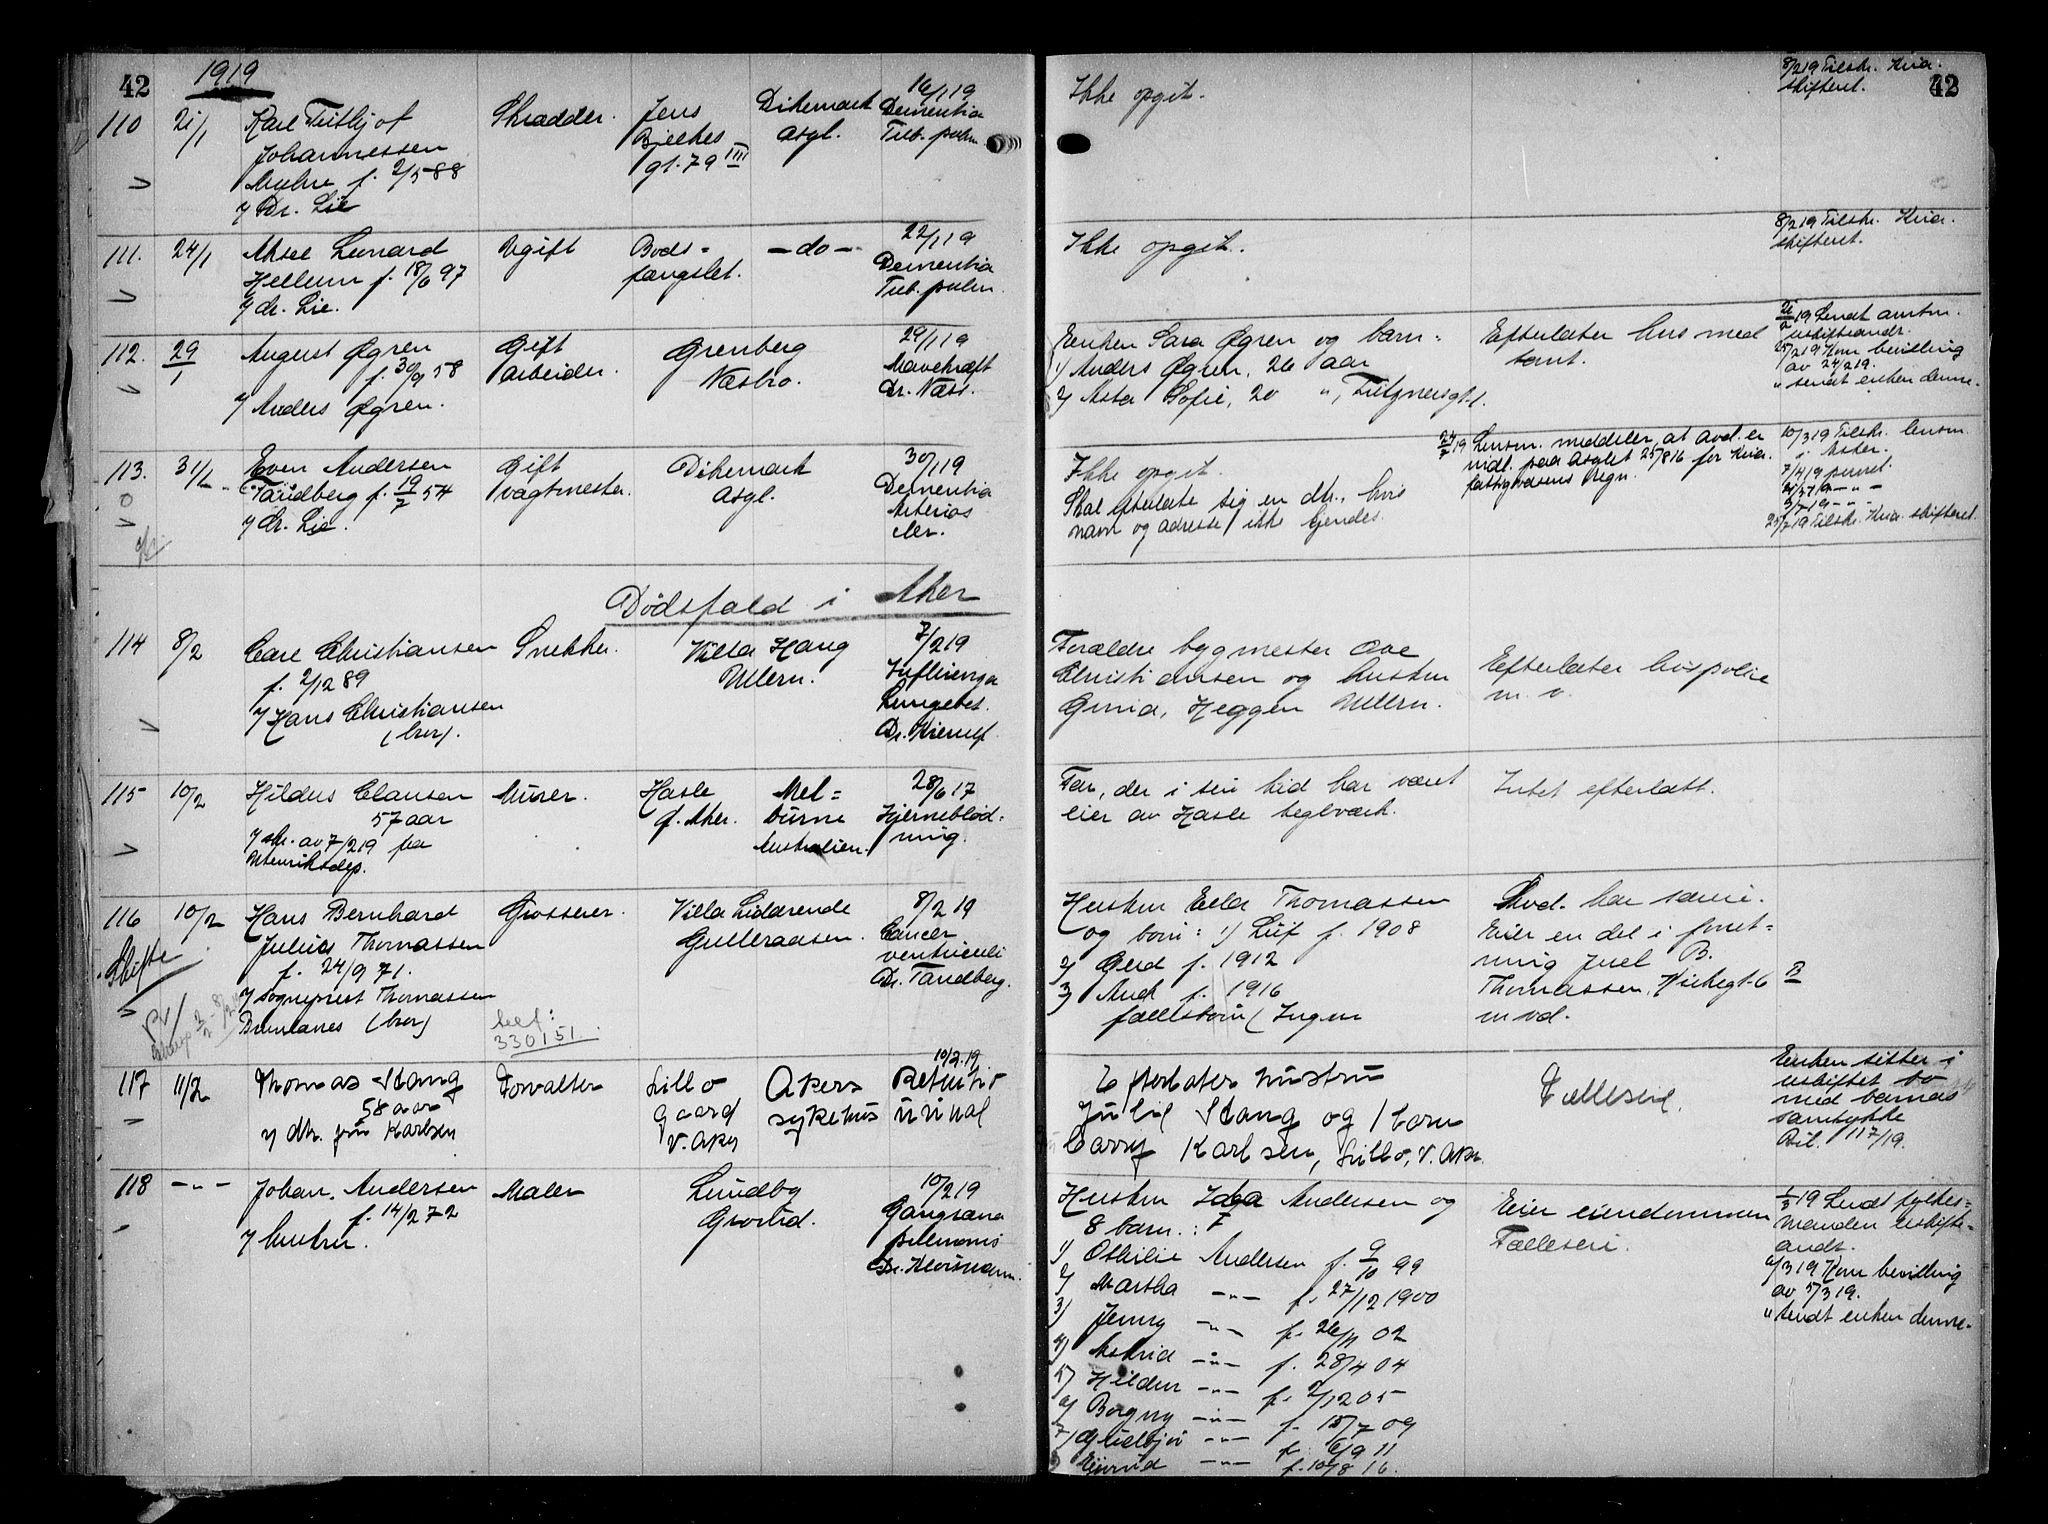 42
1919
110
21/1
Karl Fritjof
Johannessen
Myhre f. 2/5 88
v/ Dr. Lie
Skrædder.
Jens
Bjelkes
gt. 79 III
Dikemark
asyl.
16/1 19
Dementia
Tub. pulm.
111.
24/1
Aksel Leonard
Hellum f. 18/6 97
v/ dr. Lie.
Ugift
Bods=
fængslet.
-do-
22/1 19
Dementia
Tub. pulm.
112.
29/1
August Øgren
f. 30/9 58
v/ Anders Øgren.
Gift
arbeider.
Grenberg
Næsbro.
29/1 19
Mavekræft
Dr. Næss.
113.
31/1
Even Andersen
Tandberg f. 19/7 54
v/ dr. Lie.
Gift
vagtmester.
Dikemark
asyl.
30/1 19
Dementia
Arterios
cler.
Dødsfald i Aker
114
8/2
Carl Christiansen
f. 2/12 89
v/ Hans Christiansen
(bror).
Snekker.
Villa Haug
Ullern.
7/2 19
Influenza
Lungebet.
Dr. Kierulf.
115
10/2
Hildus Clausen
57 aar
v/ skr. av 7/2 19 fra
Utenriksdep.
Murer.
Hasle
Ø. Aker.
Mel=
burne
Australien.
28/6 17
Hjerneblød=
ning.
116
10/2
Skifte
Hans Bernhard
Julius Thomassen
f. 24/9 71.
v/ sogneprest Thomassen
Brunlanes (bror)
Grosserer.
telf:
330151
Villa Liddrende
Gulleraasen.
8/2 19
Cancer
ventriculi
Dr. Tandberg.
117
11/2
Thomas Stang
58 aar
v/ dtr. fru Karlsen
Forvalter
Lillo
gaard
V. Aker
Akers
sykehus
10/2. 19
Retentio
urinal
118
-"-
Johan. Andersen
f. 14/2 72
v/ hustru.
Maler
Lundby
Grorud.
10/2 19
Gangræna
pulmonis
Dr. Heinsmann.
42
Ikke opgit.
8/2 19 Tilskr. Kria.
skifteret.
Ikke opgit.
8/2 19 Tilskr. Kria.
skifteret.
Enken Sara Øgren og barn:
1) Anders Øgren, 26 aar
2) Asta Sofie, 20 " , Fritznersgt 1.
Efterlater hus med
tomt.
21/2 19 Sendt amtm.
uskifteandr.
25/2 19 Kom bevilling
av 24/2 19.
" sendt enken denne.
Ikke opgit.
Skal efterlate sig en dtr., hvis
navn og adresse ikke kjendes.
24/7 19 Lensm. meddeler, at avd. er
indl. paa asylet 25/8 16 for Kria.
fattigvæsens regn.
10/3 19 Tilskr. lensm.
i Asker.
7/4 19 purret.
25/7 19 Tilskr. Kria. skifteret.
Forældre bygmester Ole
Christiansen og hustru
Gunia, Heggen Ullern.
Efterlater livspolice
m. v.
Far, der i sin tid har været
eier av Hasle teglverk.
Intet efterlatt.
Hustru Ella Thomassen
og barn: 1) Leif f. 1908
2) Gerd f. 1912
3) Aud f. 1916
fællesbarn (Ingen
Avd. har særei.
Eier en del i forret=
ning Juel B.
Thomassen, Kirkegt. 6 B
m. v.
Efterlater hustru
Julie Stang og 1 barn
Carry Karlsen, Lillo, V. Aker.
Fælleseie.
Enken sitter i
uskiftet bo
med barnas
samtykke
Bil. 117/19.
Hustru Ida Andersen og
8 barn. :
1) Othilie Andersen f. 9/10 99
2) Martha -"- f. 27/12 1900
3) Jenny -"- f. 26/11 02
4) Astrid -"- f. 28/4 04
5) Hildur -"- f. 2/12 05
6) Borgny -"- f. 15/7 09
7) Gudbjør -"- f. 6/9 11
8) Eivind -"- f. 10/8 16.
Eier eiendommen
Fælleseie.
1/3 19 Sendt fylkes=
manden uskifte=
andr.
6/3 19 Kom bevilling
av 5/3 19.
" sendt enken denne.